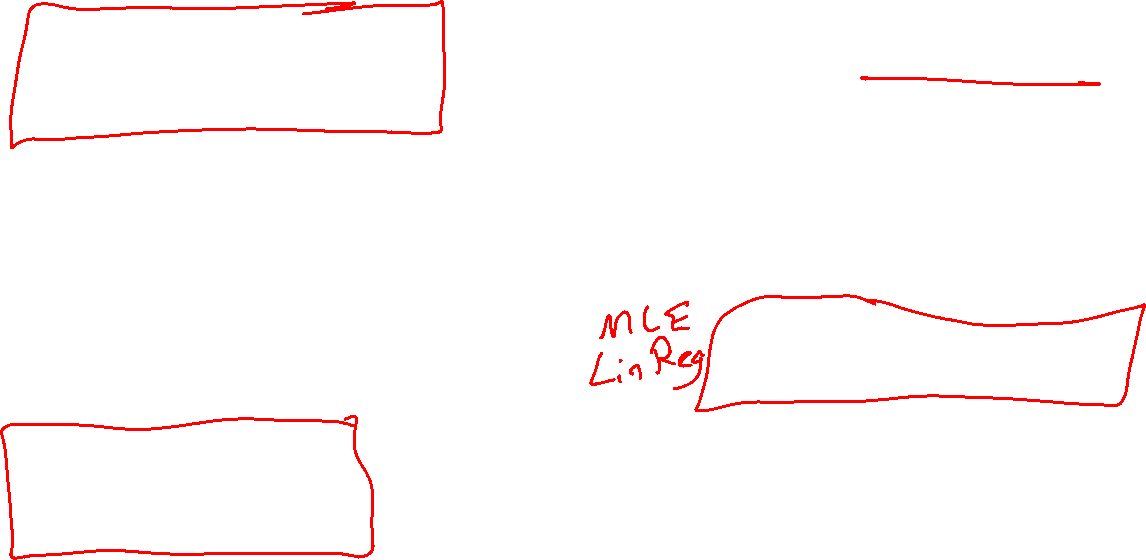 MLE
LinReg